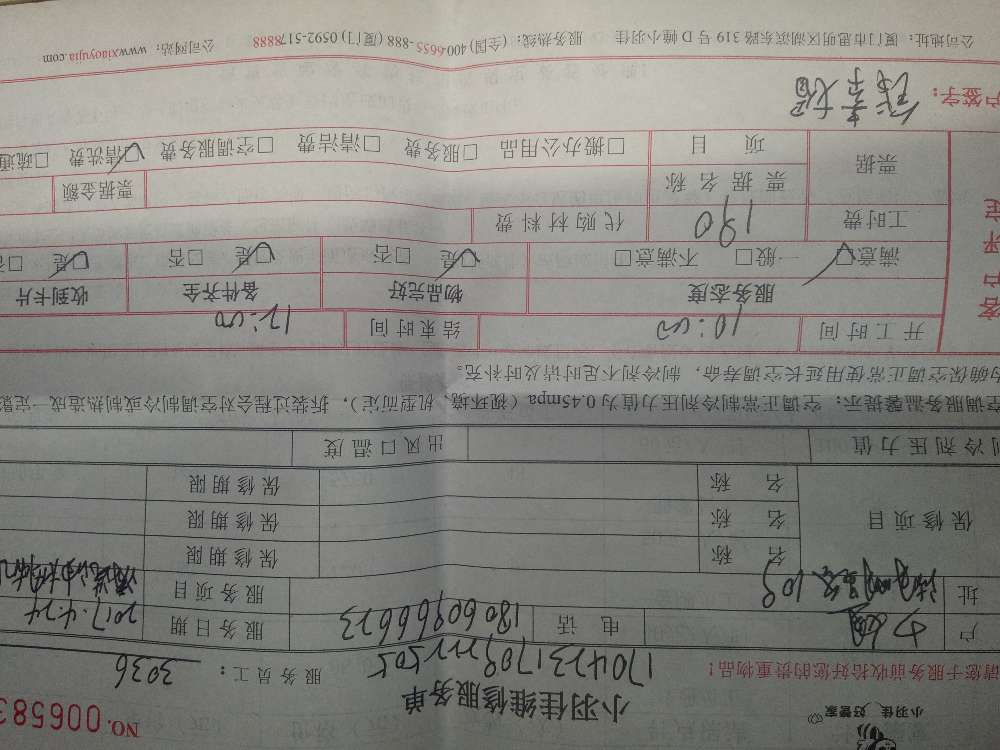 小羽佳 好管家
NO. 006583
小羽佳维修服务单
请您于服务前收拾好您的贵重物品!
服务员工: 3036
户
电话 18060966623
服务日期 2017.4.24
址
服务项目
保修项目
名称 保修期限
名称 保修期限
名称 保修期限
制冷剂压力值 出风口温度
空调服务温馨提示: 空调正常制冷剂压力值为0.45mpa (视环境、机型而定), 拆装过程会对空调制冷或制热造成一定影
为确保空调正常使用延长空调寿命, 制冷剂不足时请及时补充。
客户评定
开工时间 10:00 结束时间 12:00
服务态度 物品完好 备件齐全 收到卡片
满意□ 一般□ 不满意□ □是 □否 □是 □否 □是 □否
工时费 190 代购材料费
票据 票据名称 票据金额
项目 □搬办公用品 □服务费 □清洁费 □空调服务费 □清洗费 □疏通
户签字:
公司地址: 厦门市思明区湖滨东路319号D幢小羽佳 服务热线: (全国) 400-6655-888 (厦门) 0592-5178888 公司网站: www.xiaoyujia.com